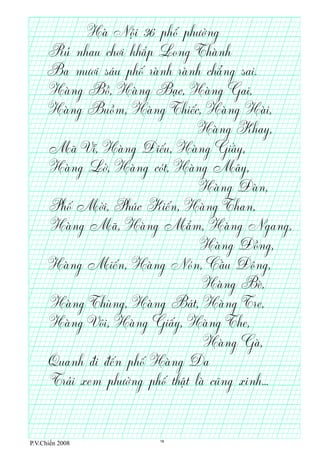 Hà Nội 36 phố phường
Rủ nhau chơi khắp Long Thành
Ba mươi sáu phố rành rành chẳng sai.
Hàng Bồ, Hàng Bạc, Hàng Gai,
Hàng Buồm, Hàng Thiếc, Hàng Hài,
Hàng Khay,
Mã Vĩ, Hàng Điếu, Hàng Giầy,
Hàng Lờ, Hàng cót, Hàng Mây,
Hàng Đàn,
Phố Mới, Phúc Kiến, Hàng Than,
Hàng Mã, Hàng Mắm, Hàng Ngang,
Hàng Đồng,
Hàng Muối, Hàng Nón, Cầu Đông,
Hàng Bè,
Hàng Thùng, Hàng Bát, Hàng Tre,
Hàng Vôi, Hàng Giấy, Hàng The,
Hàng Gà,
Quanh đi đến phố Hàng Da
Trải xem phường phố thật là cũng xinh...
P.V.Chiến 2008